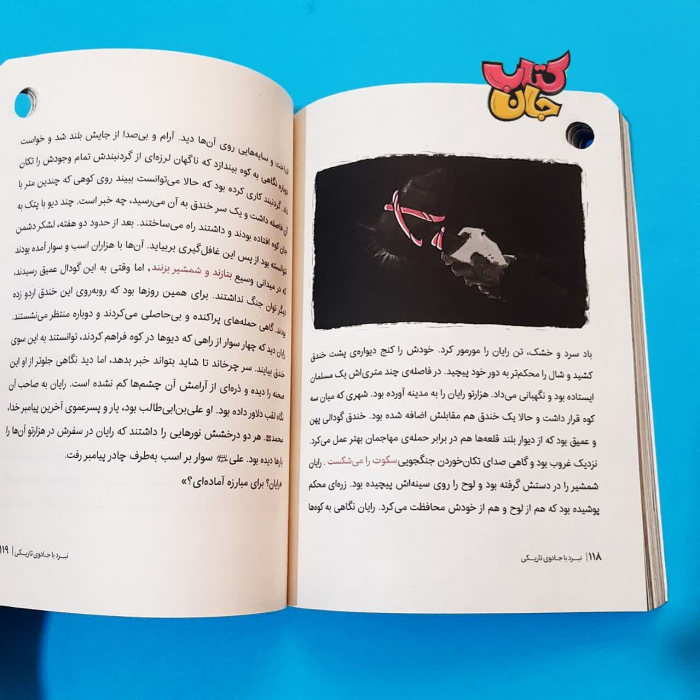 کتاب
جان
باد سرد و خشک، تن رایان را مورمور کرد. خودش را کنج دیواره‌ی پشت خندق
کشید و شال را محکم‌تر به دور خود پیچید. در فاصله‌ی چند متری‌اش یک مسلمان
ایستاده بود و نگهبانی می‌داد. هزارتو رایان را به مدینه آورده بود. شهری که میان سه
کوه قرار داشت و حالا یک خندق هم مقابلش اضافه شده بود. خندق گودالی پهن
و عمیق بود که از دیوار بلند قلعه‌ها هم در برابر حمله‌ی مهاجمان بهتر عمل می‌کرد.
نزدیک غروب بود و گاهی صدای تکان‌خوردن جنگجویی سکوت را می‌شکست. رایان
شمشیر را در دستش گرفته بود و لوح را روی سینه‌اش پیچیده بود. زره‌ای محکم
پوشیده بود که هم از لوح و هم از خودش محافظت می‌کرد. رایان نگاهی به کوه‌ها
۱۱۸ | نبرد با جادوی تاریکی
و سایه‌هایی روی آن‌ها دید. آرام و بی‌صدا از جایش بلند شد و خواست
نگاهی به کوه بیندازد که ناگهان لرزه‌ای از گردنبندش تمام وجودش را تکان
گردنبند کاری کرده بود که حالا می‌توانست ببیند روی کوهی که چندین متر با
فاصله داشت و یک سر خندق به آن می‌رسید، چه خبر است. چند دیو با پتک به
جان کوه افتاده بودند و داشتند راه می‌ساختند. بعد از حدود دو هفته، لشکر دشمن
توانسته بود از پس این غافل‌گیری بربیاید. آن‌ها با هزاران اسب و سوار آمده بودند
که در میدانی وسیع بتازند و شمشیر بزنند، اما وقتی به این گودال عمیق رسیدند،
دیگر توان جنگ نداشتند. برای همین روزها بود که روبه‌روی این خندق اردو زده
بودند. گاهی حمله‌های پراکنده و بی‌حاصلی می‌کردند و دوباره منتظر می‌نشستند.
رایان دید که چهار سوار از راهی که دیوها در کوه فراهم کردند، توانستند به این سوی
خندق بیایند. سر چرخاند تا شاید بتواند خبر بدهد، اما دید نگاهی جلوتر از او این
صحنه را دیده و ذره‌ای از آرامش آن چشم‌ها کم نشده است. رایان به صاحب آن
نگاه لقب دلاور داده بود. او علی‌بن‌ابی‌طالب بود، یار و پسرعموی آخرین پیامبر خدا،
محمدﷺ. هر دو درخشش نورهایی را داشتند که رایان در سفرش در هزارتو آن‌ها را
بارها دیده بود. علی سوار بر اسب به‌طرف چادر پیامبر رفت.
«رایان؟ برای مبارزه آماده‌ای؟»
نبرد با جادوی تاریکی | ۱۱۹